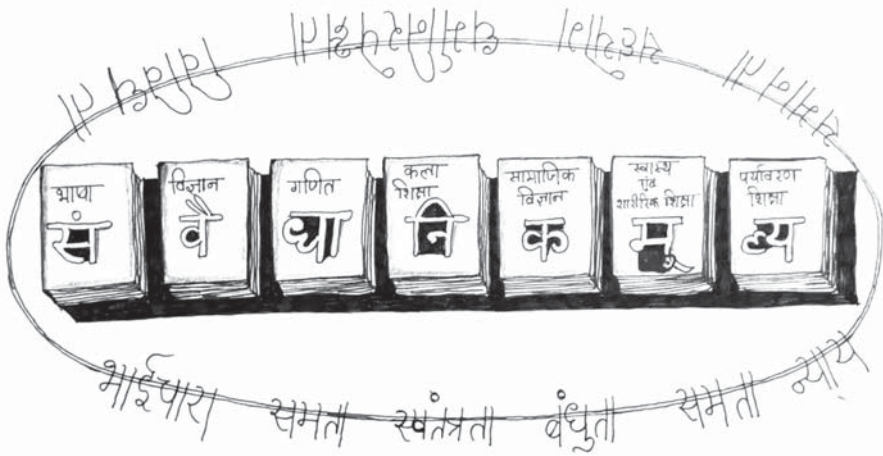 भाषा
सं
विज्ञान
वै
गणित
धा
कला
शिक्षा
नि
सामाजिक
विज्ञान
क
स्वास्थ्य
एवं
शारीरिक शिक्षा
मू
पर्यावरण
शिक्षा
ल्य
भाईचारा समता स्वतंत्रता बंधुता समता न्याय